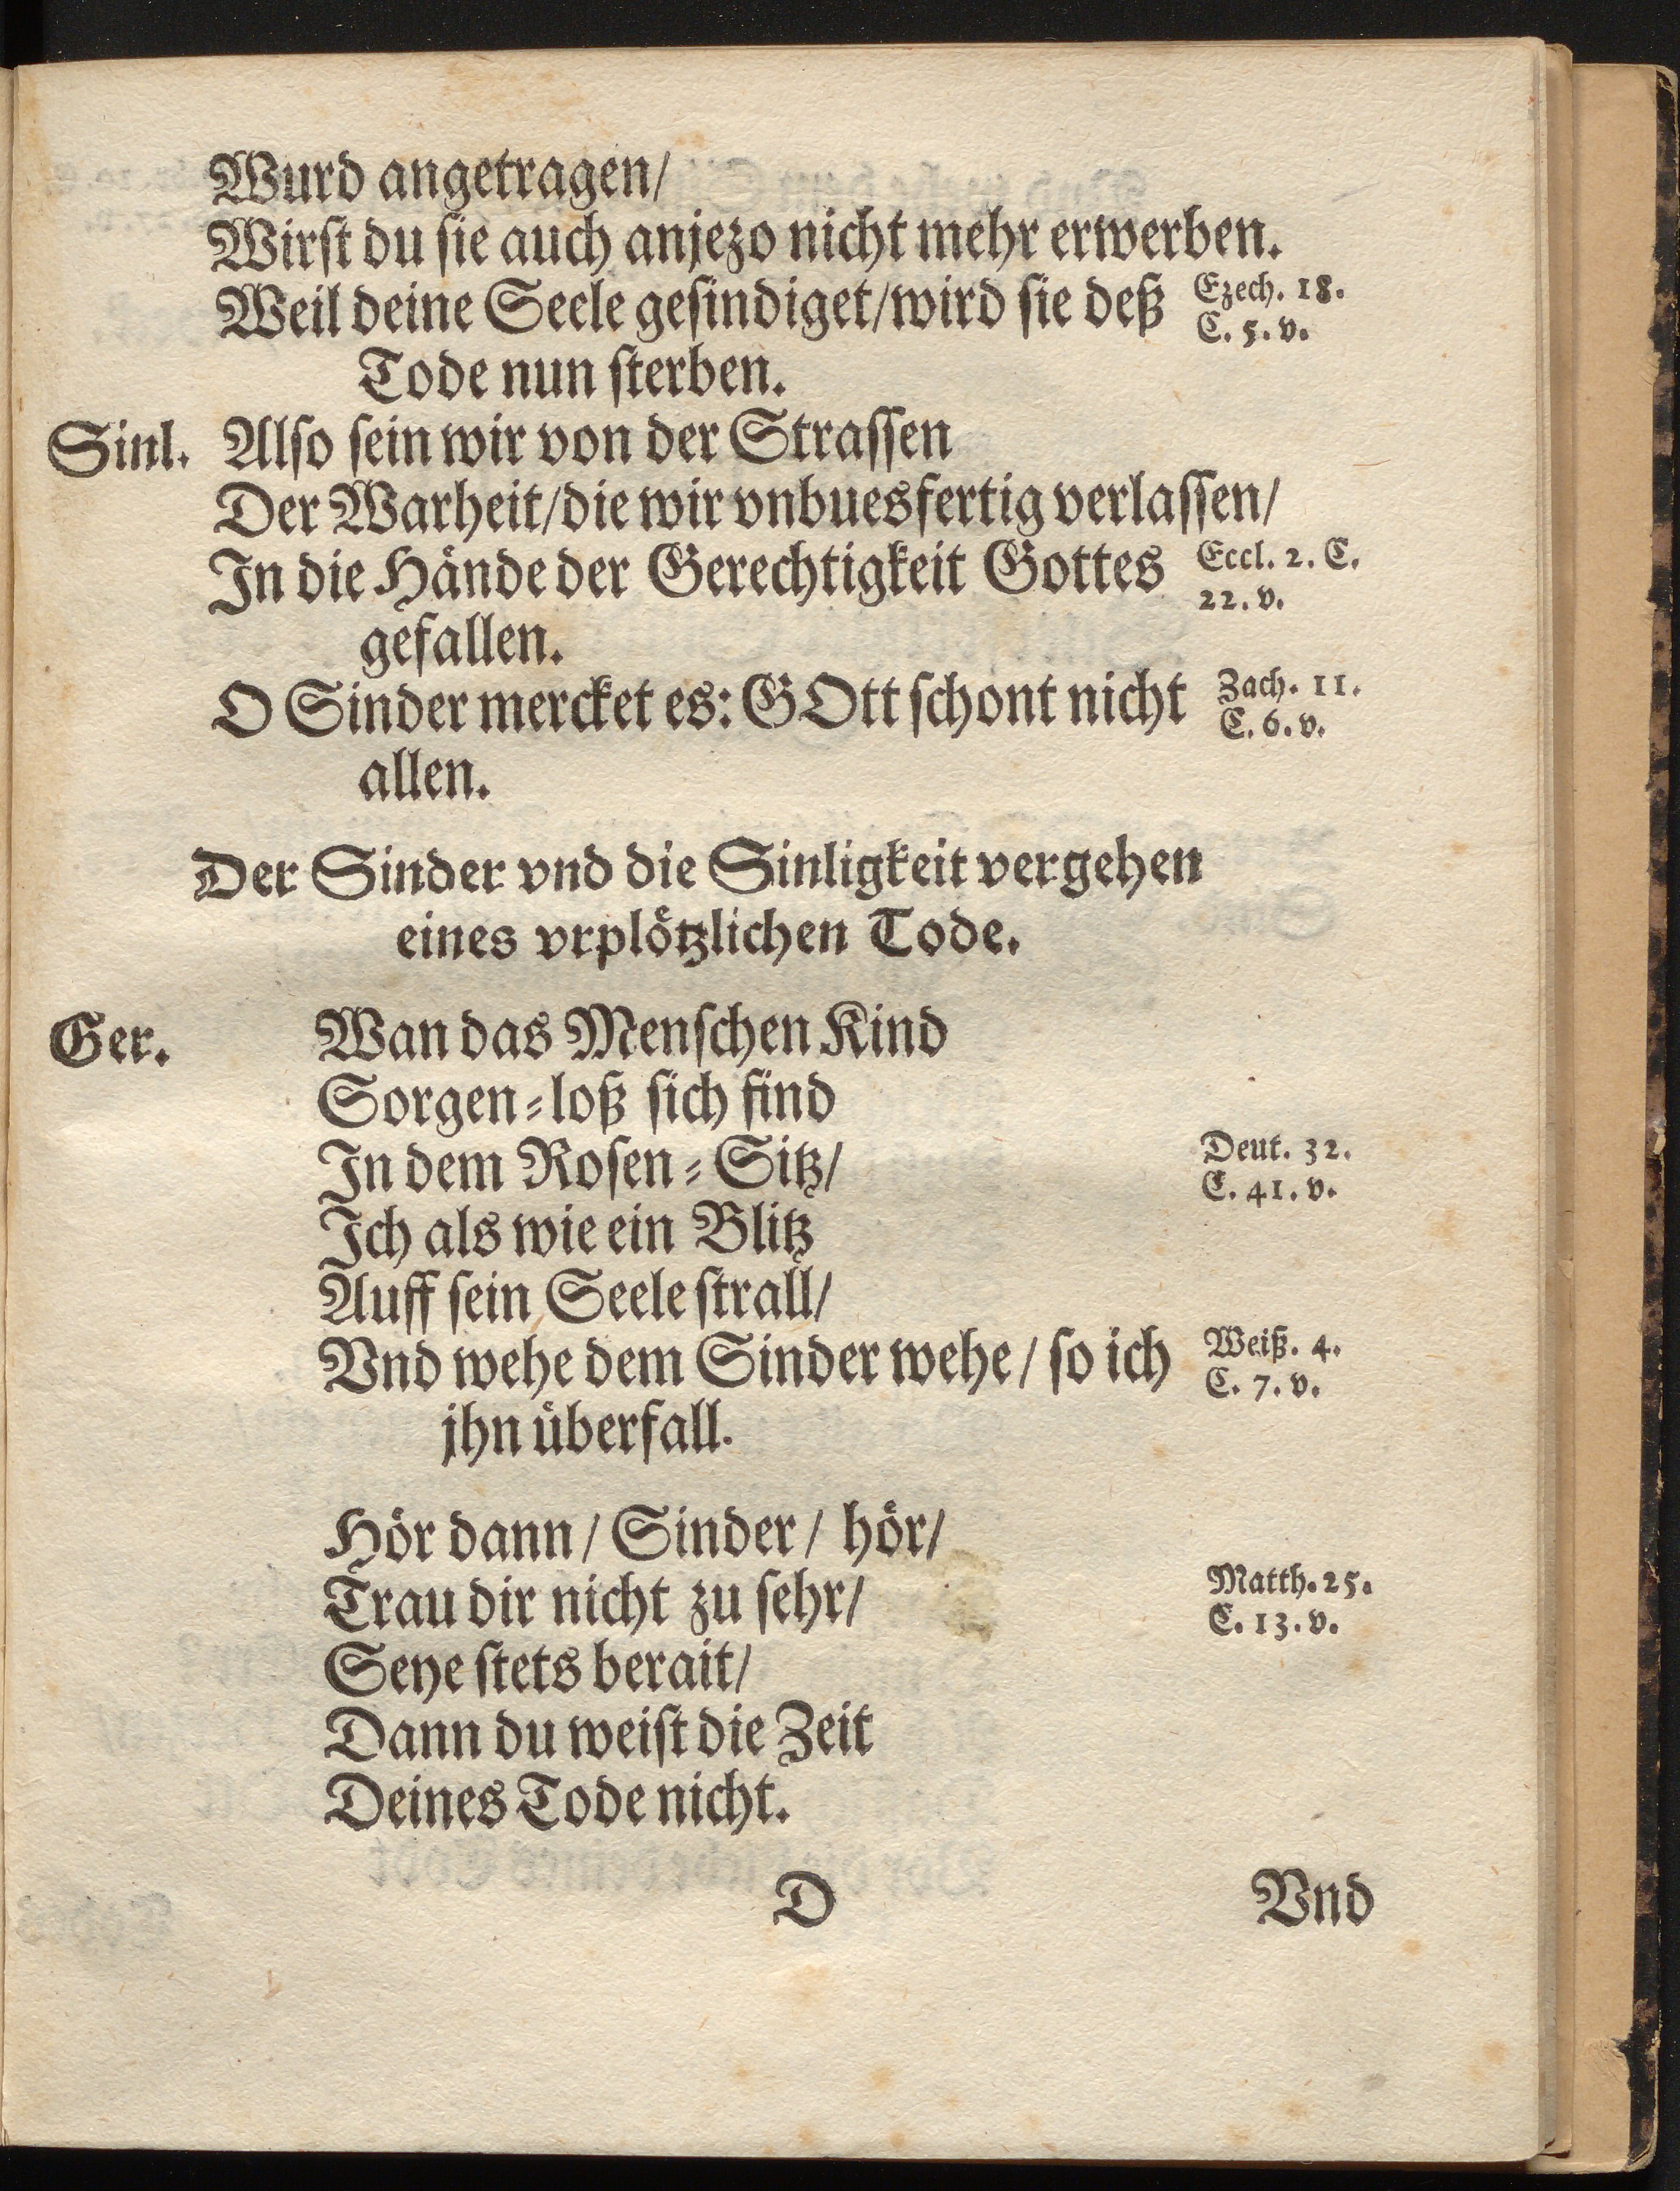 Wurd angetragen/
Wirſt du ſie auch anjezo nicht mehr erwerben.
Weil deine Seele geſindiget/wird ſie deß
Ezech. 18.
C. 5. v.
Tode nun ſterben.
Sinl. Alſo ſein wir von der Straſſen
Der Warheit/die wir vnbuesfertig verlaſſen/
In die Hände der Gerechtigkeit Gottes
Eccl. 2. C.
22. v.
gefallen.
O Sinder mercket es: GOtt ſchont nicht
Zach. 11.
C. 6. v.
allen.
Der Sinder vnd die Sinligkeit vergehen
eines vrplötzlichen Tode.
Ger. Wan das Menſchen Kind
Sorgen-loß ſich find
In dem Roſen-Sitz/
Deut. 32.
C. 41. v.
Ich als wie ein Blitz
Auff ſein Seele ſtrall/
Vnd wehe dem Sinder wehe/ ſo ich
Weiß. 4.
C. 7. v.
jhn überfall.
Hör dann/ Sinder/ hör/
Trau dir nicht zu ſehr/
Matth. 25.
C. 13. v.
Seye ſtets berait/
Dann du weiſt die Zeit
Deines Tode nicht.
D
Vnd